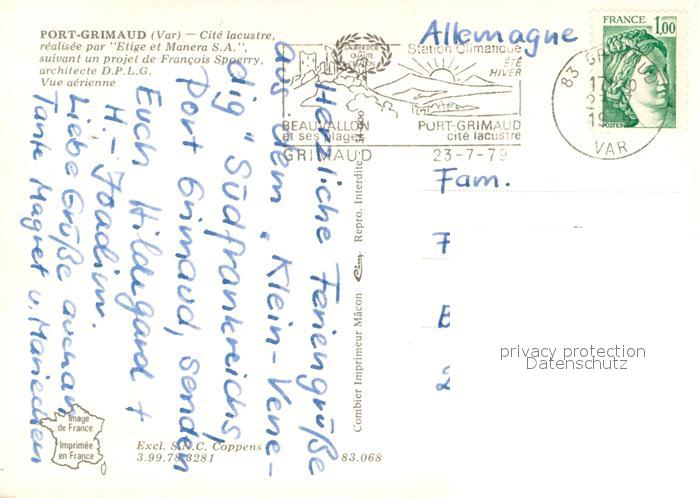 PORT-GRIMAUD (Var) — Cité lacustre,
réalisée par "Etige et Manera S.A.",
suivant un projet de François Spoerry,
architecte D.P.L.G.
Vue aérienne
Allemagne
FRANCE 1,00
POSTES
Station Climatique
ÉTÉ
HIVER
BEAUVALLON
et ses plages
PORT-GRIMAUD
cité lacustre
GRIMAUD 23-7-79
83
VAR
Herzliche Feriengrüße
aus dem „Klein-Vene-
dig" Südfrankreichs,
Port Grimaud, senden
Euch Hildegard +
H.-Joachim.
Liebe Grüße auch an
Tante Magret u. Mariechen
Fam.
Combier Imprimeur Mâcon Cim Repro. Interdite
privacy protection
Datenschutz
Image
de France
Imprimée
en France
Excl. S.N.C. Coppens
3.99.78.3281
83.068